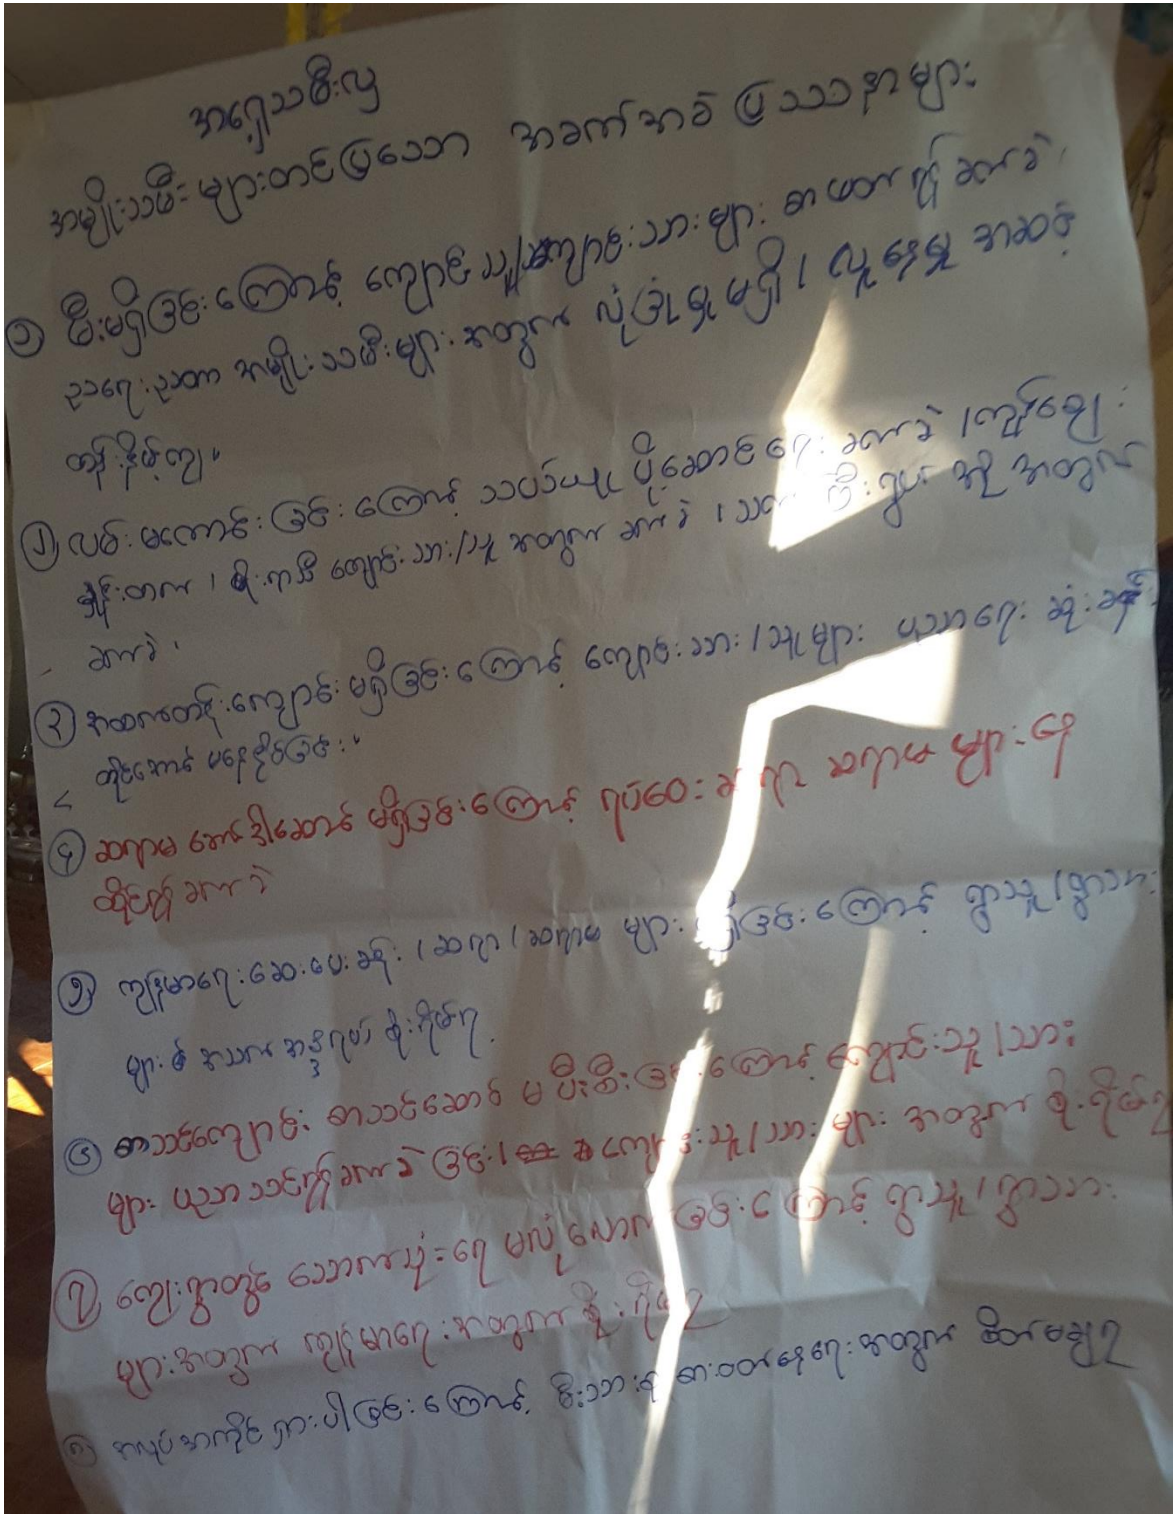 အရှေ့သဖီးလှ
အမျိုးသမီးများတင်ပြသော အခက်အခဲ ပြဿနာများ
၁ မီးမရှိခြင်းကြောင့် ကျောင်းသူ/ကျောင်းသားများ စာဖတ်ရန်ခက်ခဲ၊
ညရေးညတာ အမျိုးသမီးများအတွက် လုံခြုံမှုမရှိ၊ လူနေမှု အဆင့်
တန်းနိမ့်ကျ။
၂ လမ်းမကောင်းခြင်းကြောင့် သယ်ယူပို့ဆောင်ရေး ခက်ခဲ၊ ကျန်းချေး
ခက်ခဲ၊
၃ အထက်တန်းကျောင်းမရှိခြင်းကြောင့် ကျောင်းသား/သူများ ပညာရေး ဆုံးခန်း
တိုင်အောင် မနေနိုင်ခြင်း။
၄ ဆရာမ ဆောင် မရှိခြင်းကြောင့် ရပ်ဝေး ဆရာမ များ နေ
ထိုင်ရန်ခက်ခဲ
၅ ကျန်းမာရေးဆေးပေးခန်း/ဆရာ/ဆရာမ များ မရှိခြင်းကြောင့် ရွာသူ/ရွာသား
များ၏ အသက်အန္တရာယ် စိုးရိမ်ရ
၆ စာသင်ကျောင်း စာသင်ဆောင် မပြီးစီးခြင်းကြောင့် ကျောင်းသူ/သား
များ ပညာသင်ရန်ခက်ခဲခြင်း၊ ကျောင်းသူ/သား များ အတွက် စိုးရိမ်ရ
၇ ကျေးရွာတွင် သောက်သုံးရေ မလုံလောက်ခြင်းကြောင့် ရွာသူ/ရွာသား
များအတွက် ကျန်းမာရေးအတွက် စိုးရိမ်ရ
၈ အလုပ်အကိုင်ရှားပါးခြင်းကြောင့် မိသားစု စားဝတ်နေရေးအတွက် စိတ်မချရ